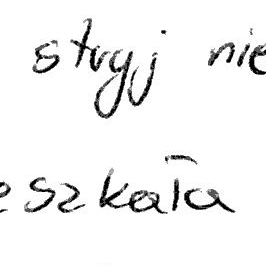 stryj nie
eszkała